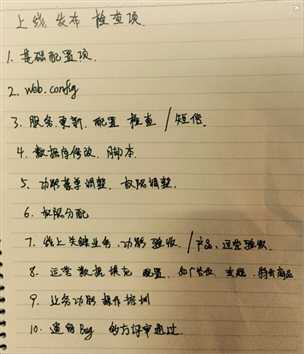 上线发布检查项
1. 基础配置项.
2. Web.config
3. 服务更新.配置检查/短信.
4. 数据库修改.脚本.
5. 功能菜单调整.权限调整.
6. 权限分配
7. 线上关键业务.功能验收/产品、运营验收.
8. 运营数据填充 配置. 如广告位、
9. 业务功能操作培训
10. 遗留Bug 多方评审通过.